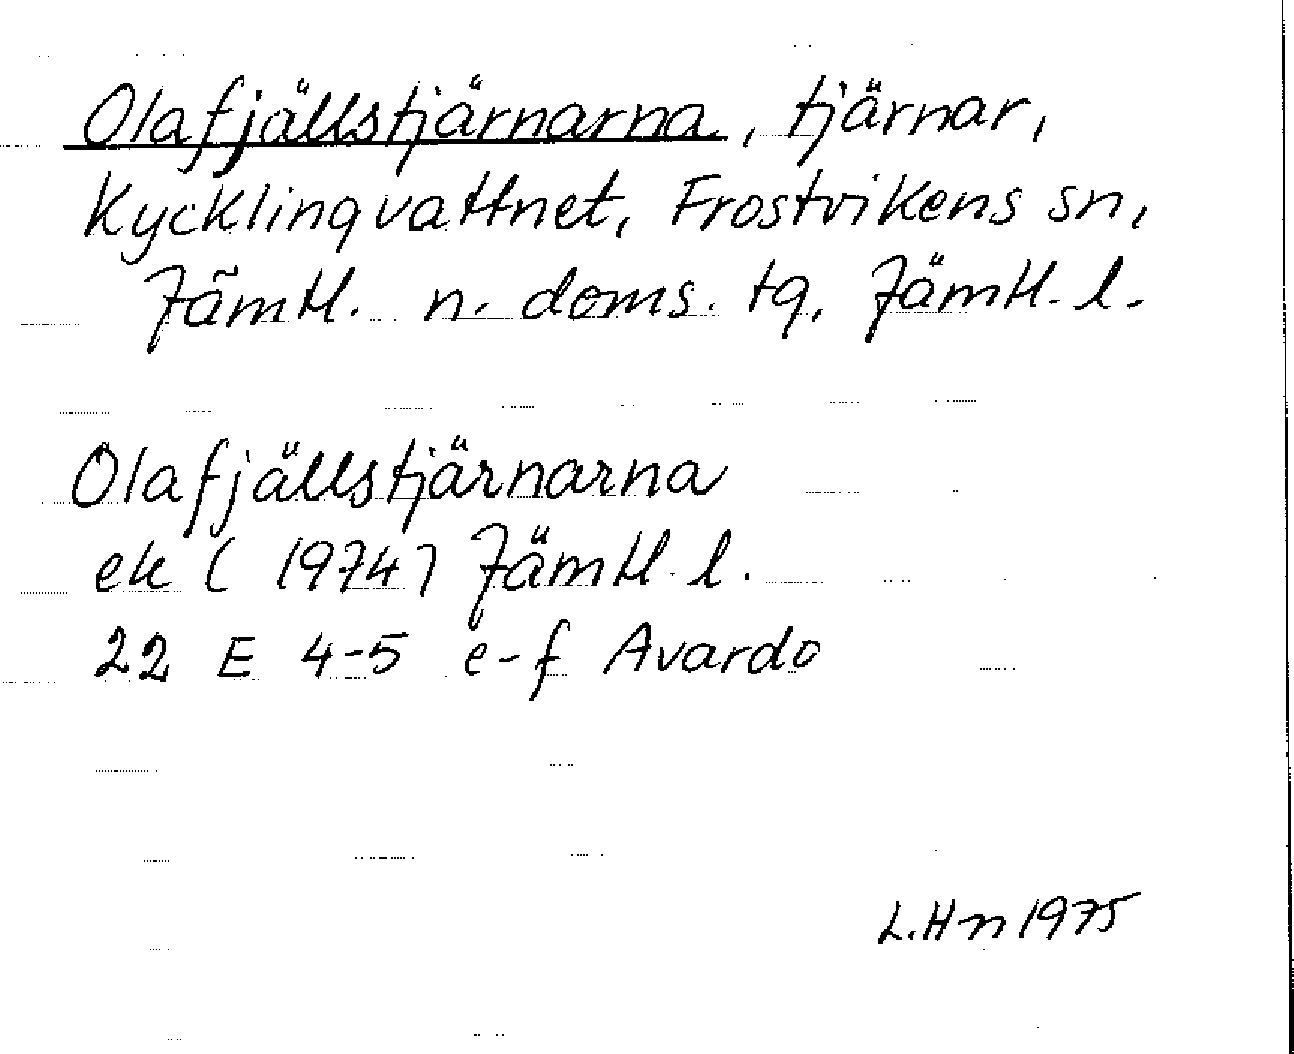 Olafjällstjärnarna, tjärnar,
Kycklingvattnet, Frostvikens sn,
Jämtl. n. doms. tg, Jämtl. l.
Olafjällstjärnarna
ek (1974) Jämtl. l.
22 E 4-5 e-f Avardo
L.Hn 1975